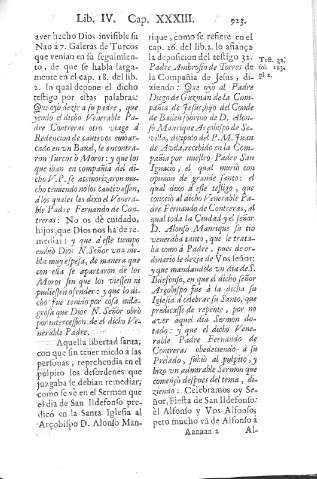 Lib. IV. Cap. XXXIII. 923.
aver hecho Dios invisible su
Nao à 7. Galeras de Turcos
que venian en su seguimien-
to, de que se habla larga-
mente en el cap. 18. del lib.
2. lo qual depone el dicho
testigo por estas palabras:
Que oyò dezir a su padre, que
yendo el dicho Venerable Pa-
dre Contreras otro viage à
Redencion de cautivos embar-
cado en un Baxel, le encontra-
ron Turcos ò Moros: y que los
que iban en compañia del di-
cho V.P. se atemorizaron mu-
cho teniendo no los cautivassen,
à los quales les dixo el Venera-
ble Padre Fernando de Con-
treras: No os dè cuidado,
hijos, que Dios nos hà de re-
mediar: y que à este tiempo
embió Dios N. Señor una nie-
bla muy espesa, de manera que
con ella se apartaron de los
Moros sin que los viessen ni
pudiessen ofender: y que lo di-
cho fue tenido por cosa mila-
grosa que Dios N. Señor obrò
por intercession de el dicho Ve-
nerable Padre.
Aquella libertad santa,
con que sin tener miedo à las
personas, reprehendia en el
pulpito los desordenes que
juzgaba se debian remediar,
como se vè en el Sermon que
el dia de San Ildefonso predi-
cò en la Santa Iglesia al
Arçobispo D. Alonso Man-
rique, como se refiere en el
cap. 26. del lib. 2. lo afiança
la deposicion del testigo 32.
Padre Ambrosio de Torres de
la Compañia de Jesus, di-
ziendo: Que oyò al Padre
Diego de Guzman de la Com-
pañia de Jesus, hijo del Conde
de Bailen sobrino de D. Alon-
so Manrique Arçobispo de Se-
villa, dicipulo del P. M. Juan
de Avila, recebido en la Com-
pañia por nuestro Padre San
Ignacio, el qual murió con
opinion de grande santo: el
qual dixo à este testigo, que
conociò al dicho Venerable Pa-
dre Fernando de Contreras, al
qual toda la Ciudad y el señor
D. Alonso Manrique su tio
veneraba tanto, que le trata-
ba como à Padre, pues de or-
dinario le dezia de Vos señor:
y que mandandole un dia de S.
Ildefonso, en que el dicho señor
Arçobispo fue à la dicha su
Iglesia à celebrar su Santo, que
predicasse de repente, por no
aver aquel dia Sermon do-
tado: y que el dicho Vene-
rable Padre Fernando de
Contreras obedeciendo à su
Prelado, subiò al pulpito, y
hizo un admirable Sermon que
començò despues del tema, di-
ziendo: Celebramos oy Se-
ñor, Fiesta de San Ildefonso:
èl Alfonso y Vos Alfonso,
pero mucho và de Alfonso à
Test. 32.
fol. 123.
pl. 2.
Aaaaaa 2 Al-